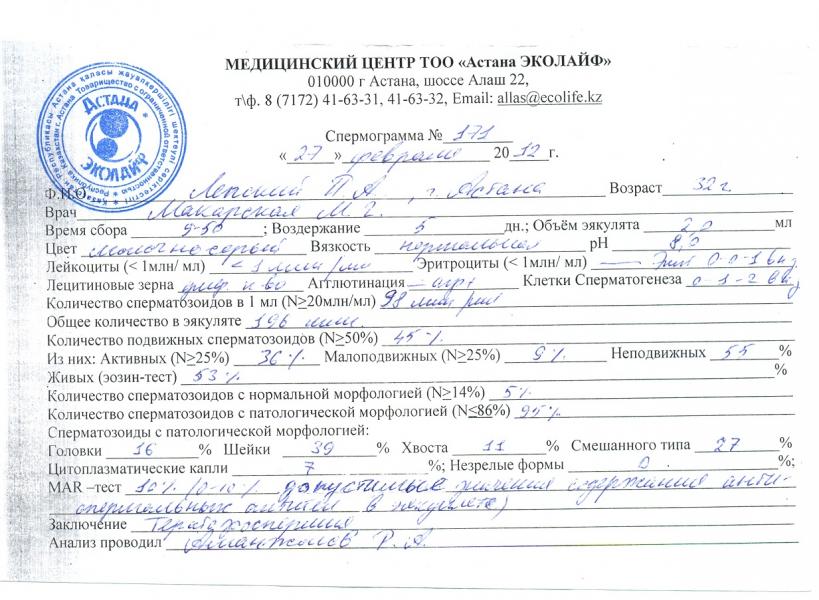 МЕДИЦИНСКИЙ ЦЕНТР ТОО «Астана ЭКОЛАЙФ»
010000 г Астана, шоссе Алаш 22,
т\ф. 8 (7172) 41-63-31, 41-63-32, Email: allas@ecolife.kz
АСТАНА
ЭКОЛАЙФ
Спермограмма № 171
« 27 » февраля 2012 г.
Ф.И.О Лепский П.А., г. Астана Возраст 32 г
Врач Макарская М.Г.
Время сбора 9-50; Воздержание 5 дн.; Объём эякулята 2,0 мл
Цвет молочно-серый Вязкость нормальная pH 8,0
Лейкоциты (< 1млн/ мл) < 1 млн/мл Эритроциты (< 1млн/ мл) — 0-0-1 в п/з
Лецитиновые зерна к-во Агглютинация — Клетки Сперматогенеза 0-1-2 в п/з
Количество сперматозоидов в 1 мл (N≥20млн/мл) 98 млн/мл
Общее количество в эякуляте 196 млн.
Количество подвижных сперматозоидов (N≥50%) 45 %
Из них: Активных (N≥25%) 36 % Малоподвижных (N≥25%) 9 % Неподвижных 55 %
Живых (эозин-тест) 53 % %
Количество сперматозоидов с нормальной морфологией (N≥14%) 5 %
Количество сперматозоидов с патологической морфологией (N≤86%) 95 %
Сперматозоиды с патологической морфологией:
Головки 16 % Шейки 39 % Хвоста 11 % Смешанного типа 27 %
Цитоплазматические капли 7 %; Незрелые формы 0 %;
MAR –тест 10 % (0-10 % допустимые значения содержания анти-
спермальных антител в эякуляте)
Заключение Тератозооспермия
Анализ проводил Аманжолов Р.А.